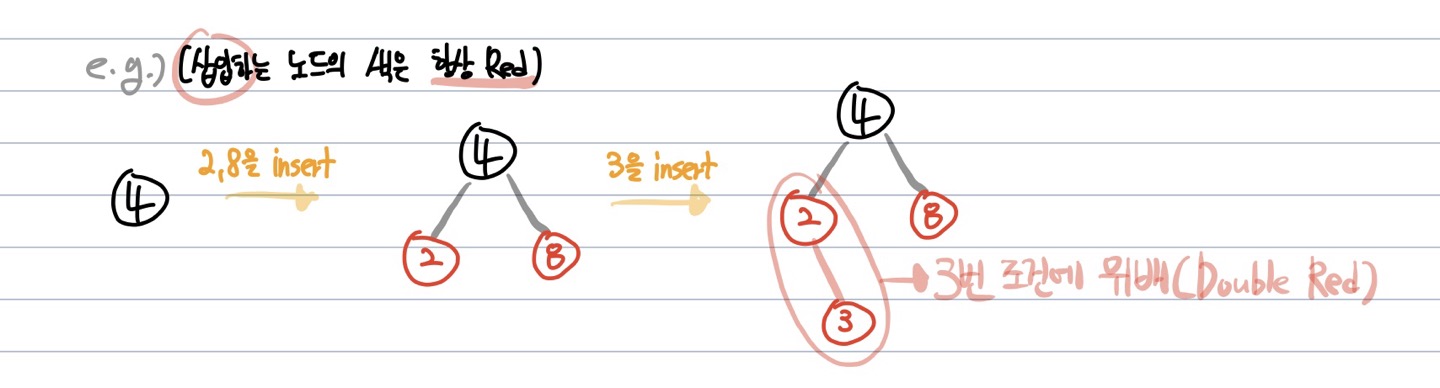 e.g.) (삽입하는 노드의 색은 항상 Red)
4
2,8을 insert
4
2
8
3을 insert
4
2
8
3
3번 조건에 위배(Double Red)